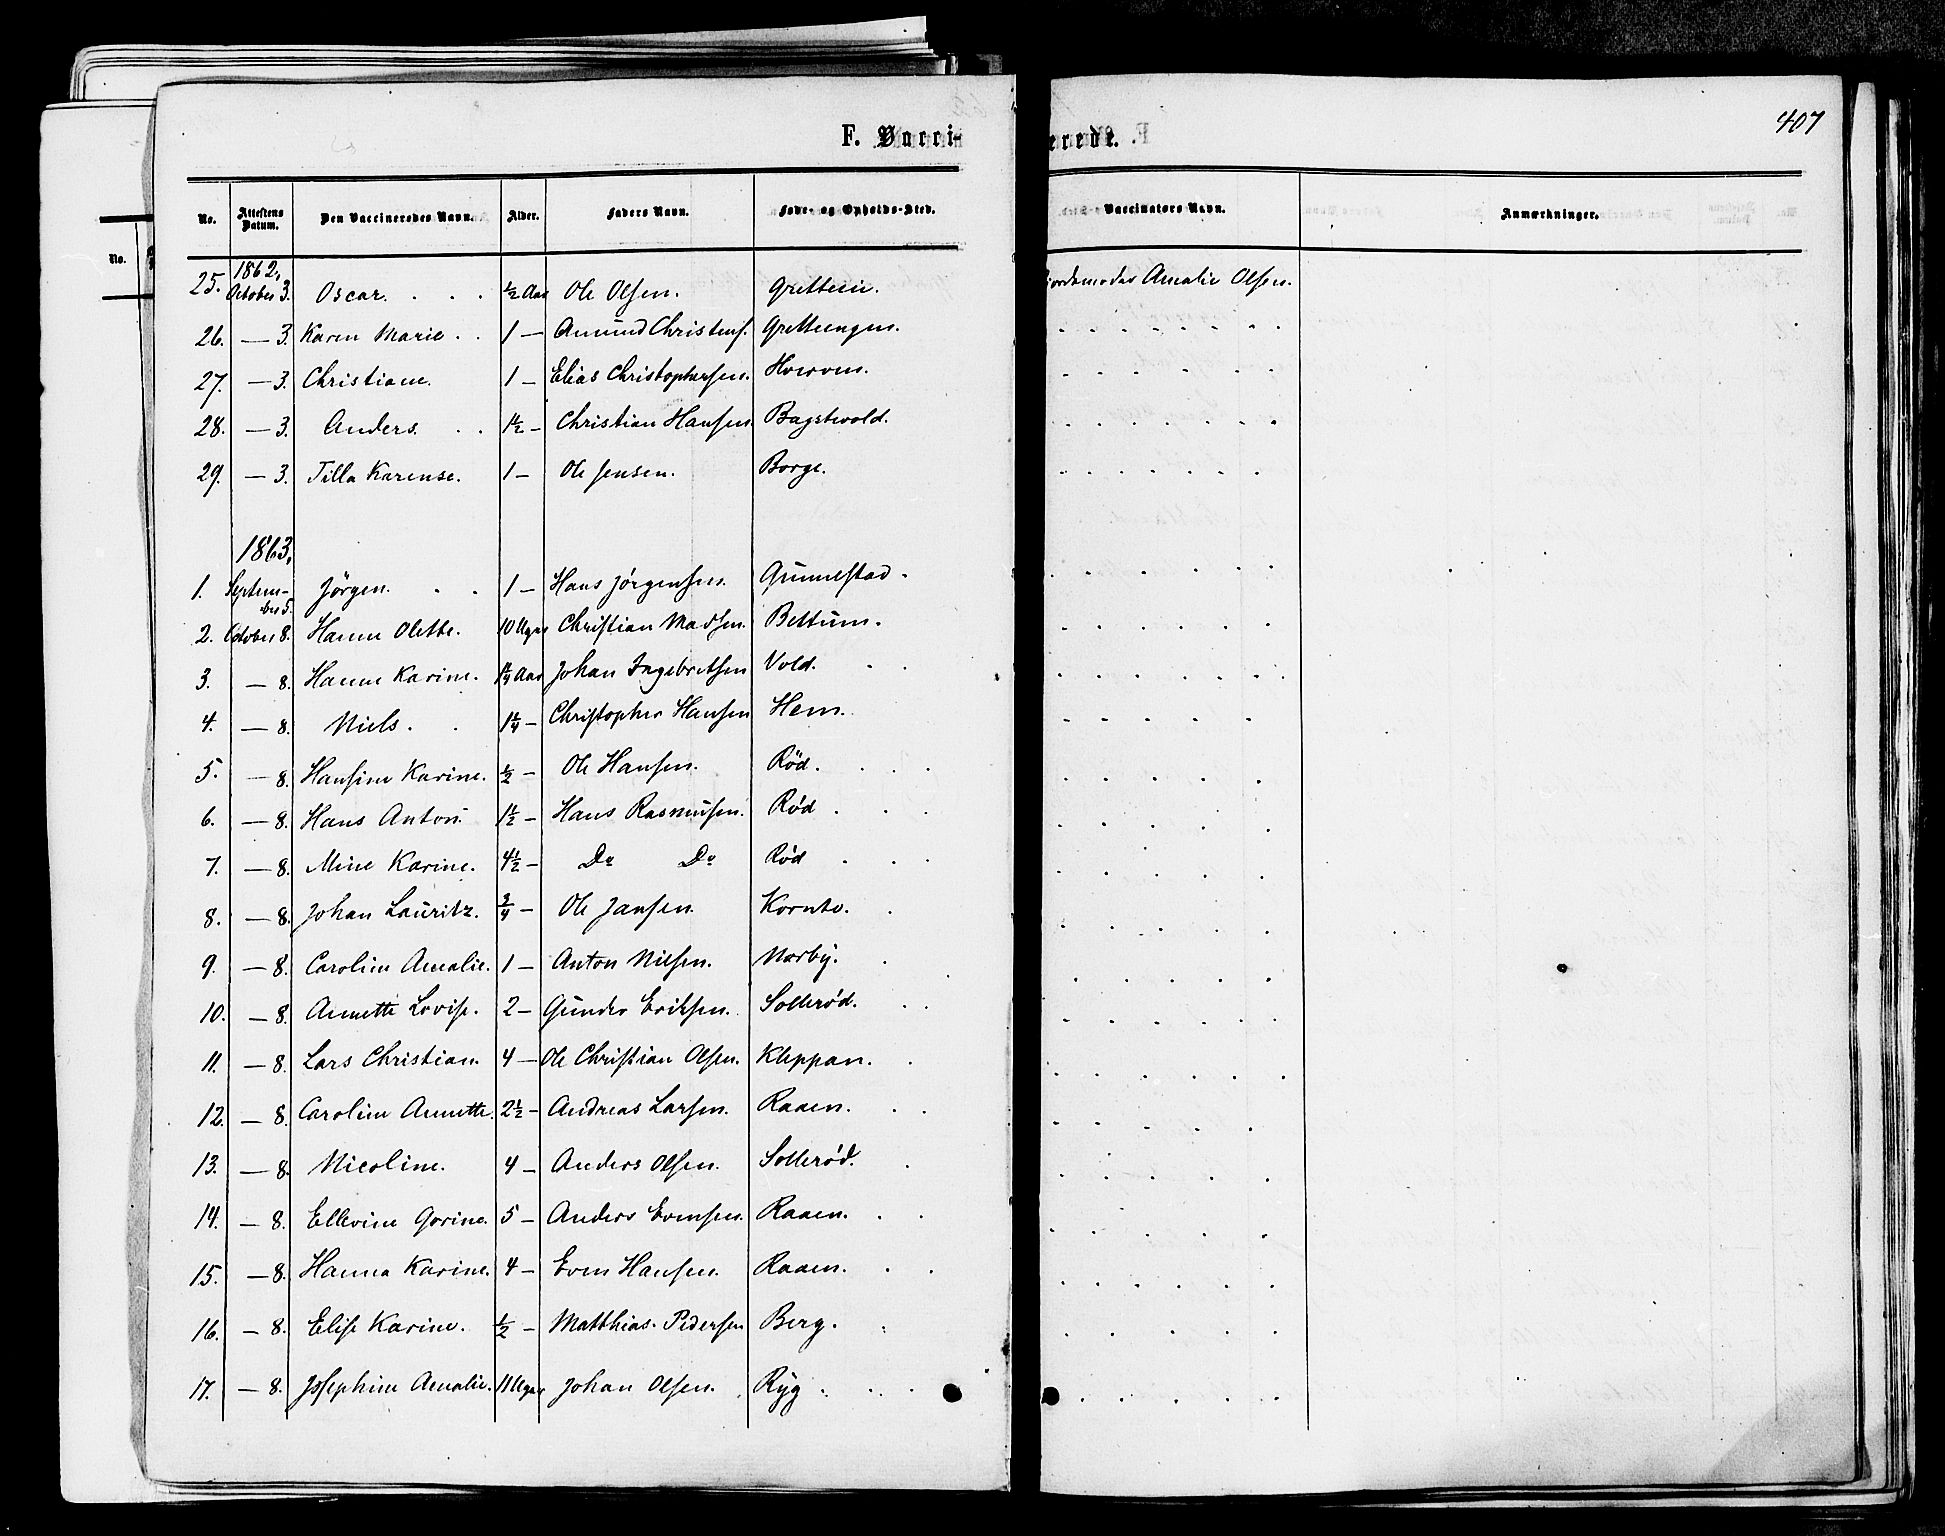 407
F. Vacci- erede.
No. Attestens Datum. Den Vaccineredes Navn. Alder. Faders Navn. Føde- og Opholds-Sted. Vaccinators Navn. Anmærkninger.
No.
1862,
25. October 3. Oscar. ½ Aar Ole Olsen. Grettein. Jordemoder Amalie Olsen.
26. — 3. Karen Marie. 1 — Amund Christens. Grettengen.
27. — 3. Christiane. 1 — Elias Christophersen. Hverven.
28. — 3. Anders. 1½ — Christian Hansen. Bagstvold.
29. — 3. Tilla Karense. 1 — Ole Jensen. Borge.
1863,
1. Septem- ber 5. Jörgen. 1 — Hans Jørgensen. Gunnestad.
2. October 8. Hanne Olette. 10 Uger Christian Madsen. Bettum.
3. — 8. Hanne Karine. 1¼ Aar Johan Ingebretsen Vold.
4. — 8. Niels. 1¼ — Christopher Hansen Hem.
5. — 8. Hansine Karine. ½ — Ole Hansen. Röd.
6. — 8. Hans Anton. 1½ — Hans Rasmusen. Rød
7. — 8. Mine Karine. 4½ — Do Do Rød
8. — 8. Johan Lauritz. ¾ — Ole Jansen. Kornto.
9. — 8. Caroline Amalie. 1 — Anton Nilsen. Nørby.
10. — 8. Annette Lovise. 2 — Gunder Eriksen. Sollerød.
11. — 8. Lars Christian. 4 — Ole Christian Olsen. Kleppan.
12. — 8. Caroline Annette. 2½ — Andreas Larsen. Raaen.
13. — 8. Nicoline. 4 — Anders Olsen. Sollerød.
14. — 8. Ellevine Gorine. 5 — Anders Evensen. Raaen.
15. — 8. Hanna Karine. 4 — Even Hansen. Raaen.
16. — 8. Elise Karine. ½ — Matthias Pedersen Berg.
17. — 8. Josephine Amalie. 11 Uger Johan Olsen. Ryg.